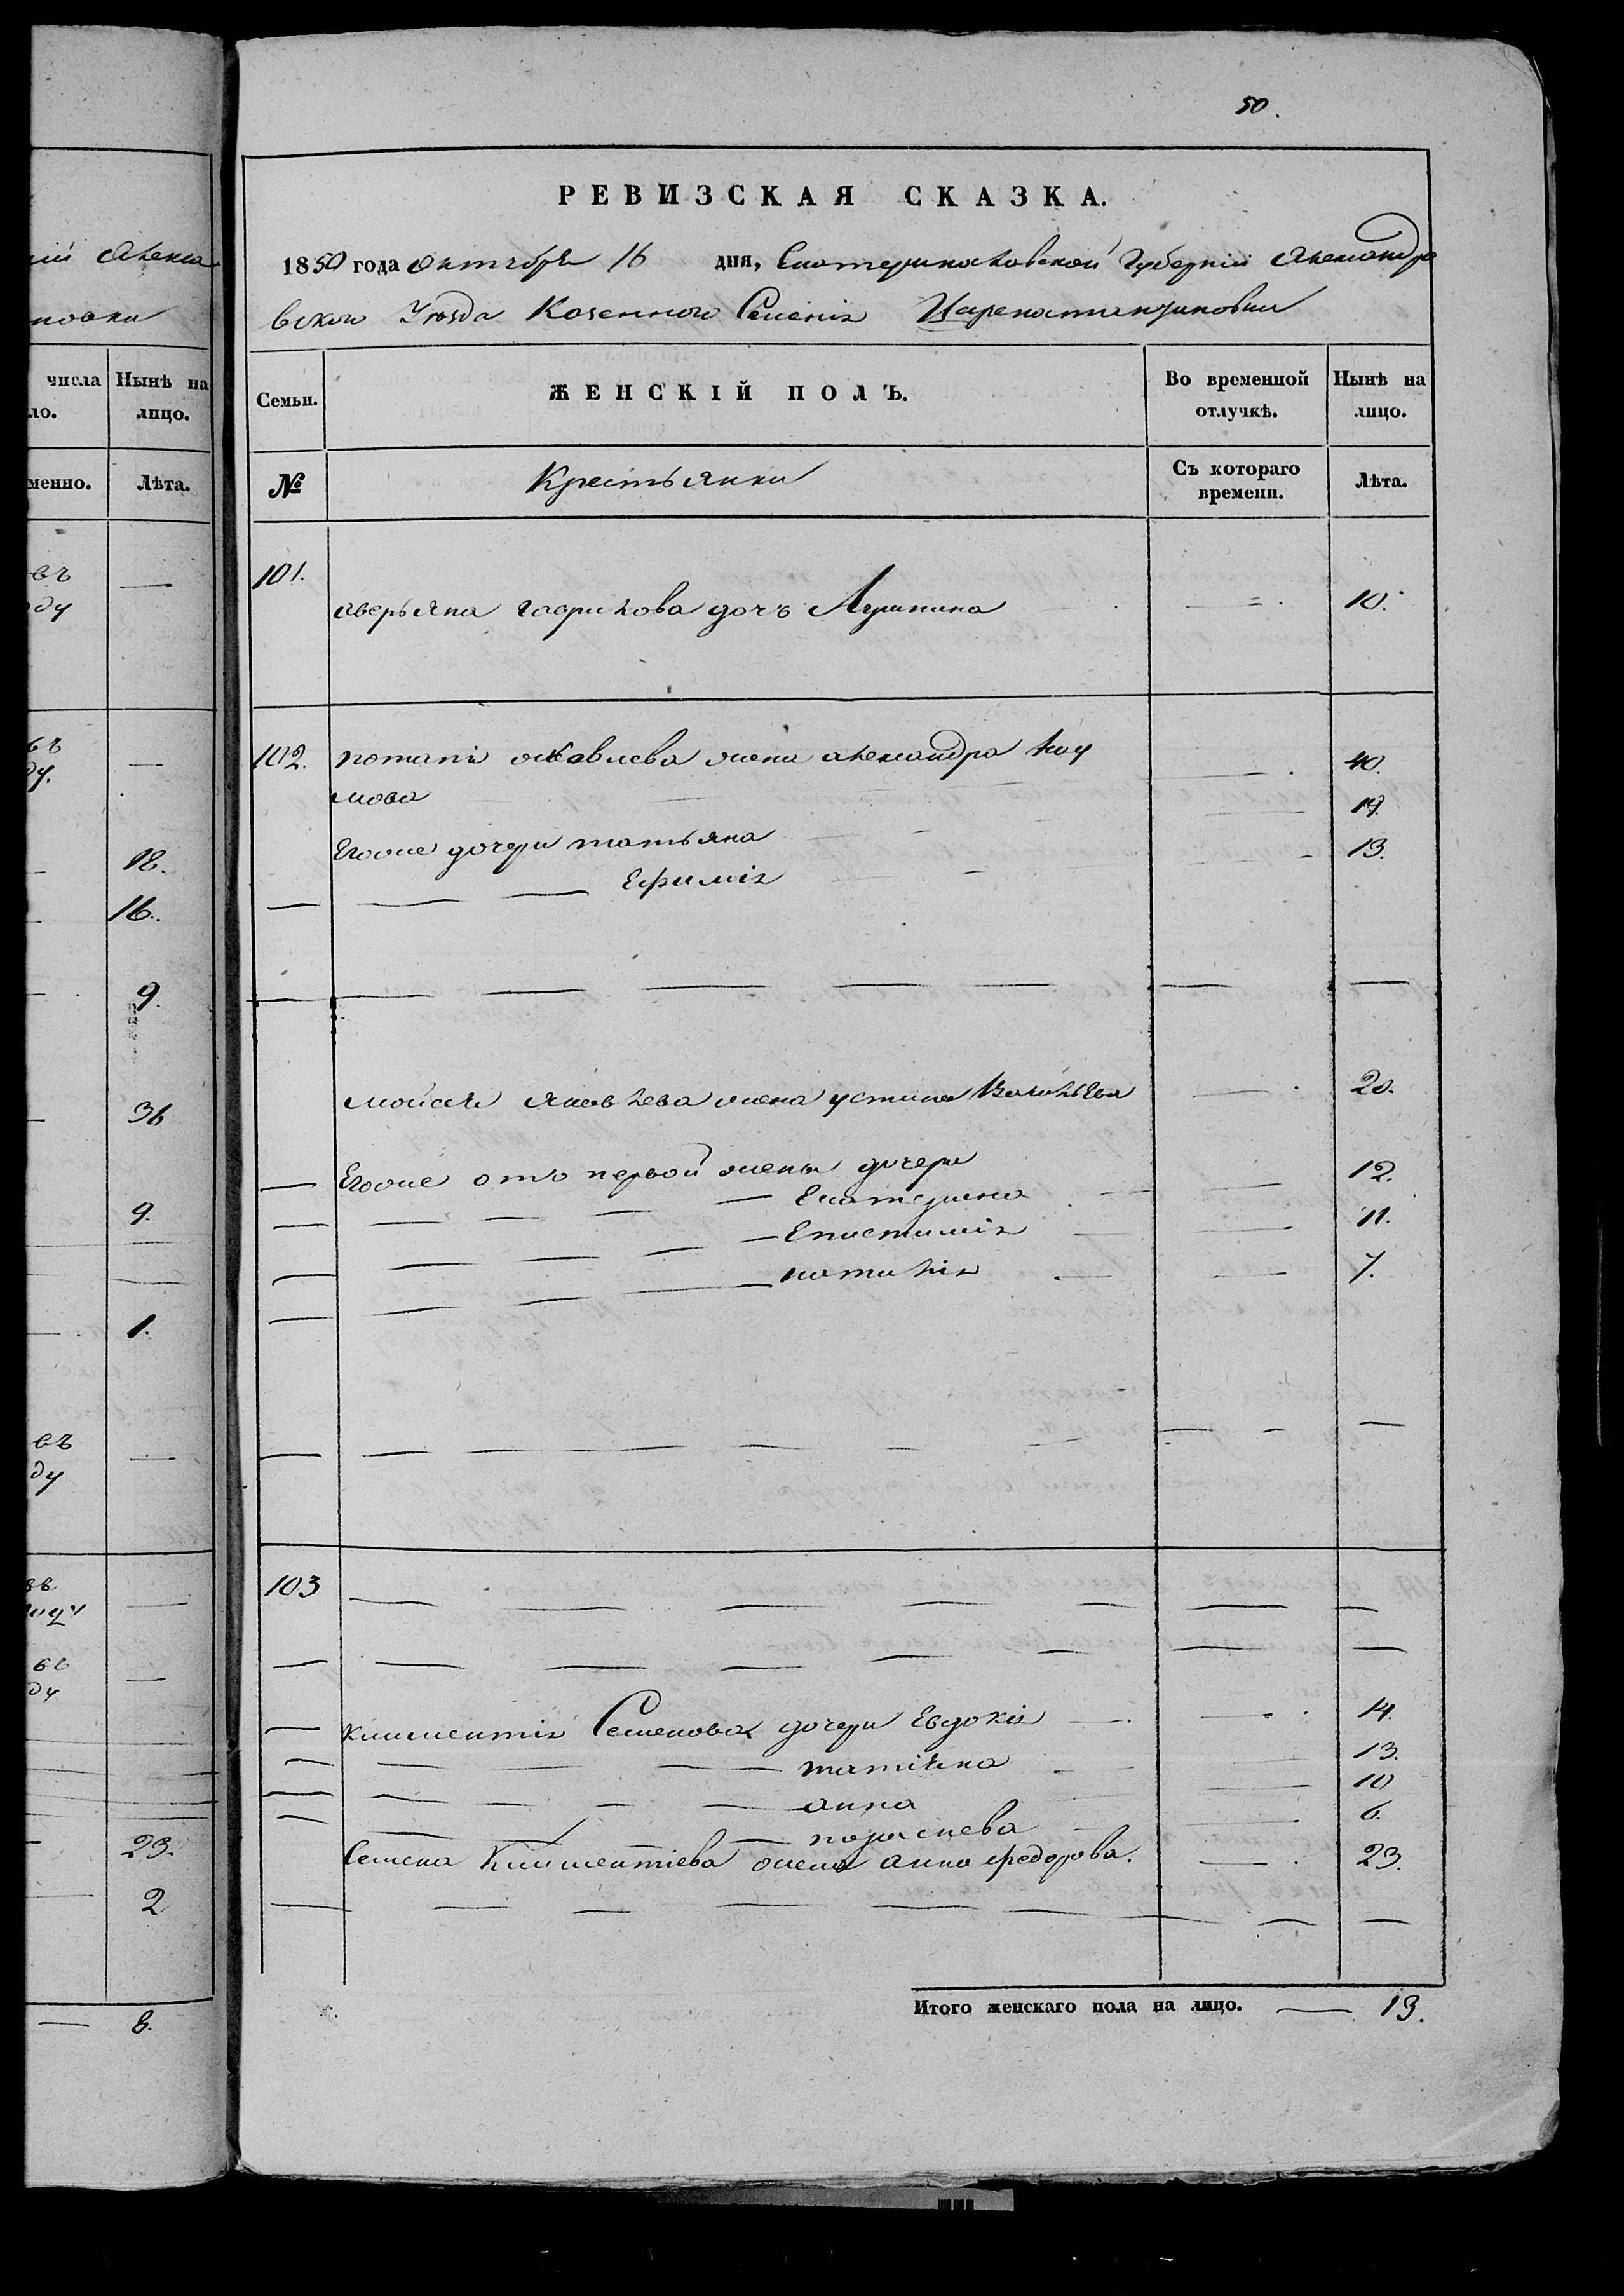 50.
РЕВИЗСКАЯ СКАЗКА.
1850 года Октября 16 дня, Екатеринославской Губерніи Александро
вского Уезда Казенного Селенія Цареконстантиновки
Семьи.
ЖЕНСКІЙ ПОЛЪ.
Во временной отлучкѣ.
Нынѣ на лицо.
№
Крестьянки
Съ котораго времени.
Лѣта.
101.
аверьяна гаврилова дочь Агрипина 10.
102. потапа яковлева жена александра 40.
мова 19.
Егоже дочери татьяна 13.
Ефимія
мойсея яковлева жена устина 20.
Егоже отъ первой жены дочери 12.
Екатерина 11.
Епистимія 7.
наталія
103
климентія Семенова дочери Евдокія 14.
татіяна 13.
анна 10
параскева 6.
Семена Климентіева жена анна федорова. 23.
Итого женскаго пола на лицо. 13.
ій Алекса
новки
числа
ло.
Нынѣ на лицо.
менно.
Лѣта.
въ
оду
въ
ду.
18.
16.
9.
36
9.
1.
въ
ду
въ
въ
ду
23.
2
8.